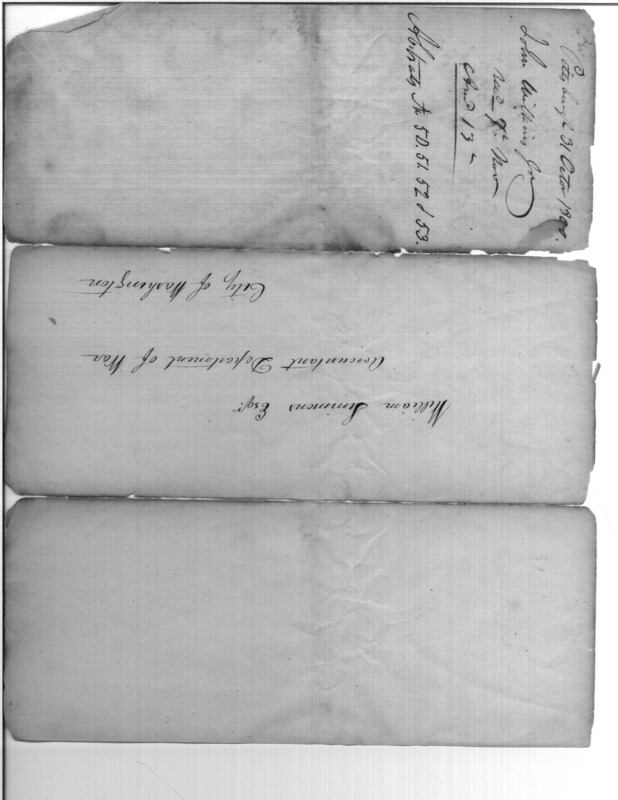 Pittsburgh 31 Octor 1800.
John Wilkins Jr
Recd 7th Nov
Ansd 13th
Abstracts A 50. 51. 52 & 53.
William Simmons Esqr.
Accountant Department of War
City of Washington